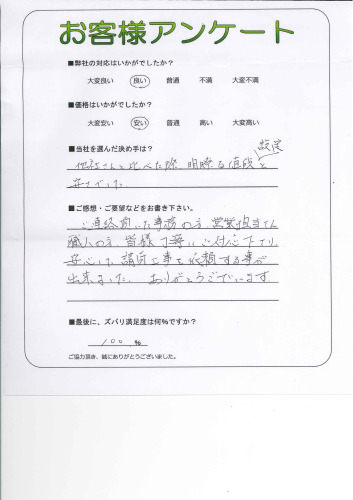 お客様アンケート
■弊社の対応はいかがでしたか?
大変良い 良い 普通 不満 大変不満
■価格はいかがでしたか?
大変安い 安い 普通 高い 大変高い
■当社を選んだ決め手は?
他社さんと比べた際、明瞭な値段と
安さでした
■ご感想・ご要望などをお書き下さい。
ご連絡頂いた事務の方、営業担当さん
職人の方、皆様丁寧にご対応下さり
安心して請負工事を依頼する事が
出来ました。ありがとうございます
■最後に、ズバリ満足度は何%ですか?
100 %
ご協力頂き、誠にありがとうございました。